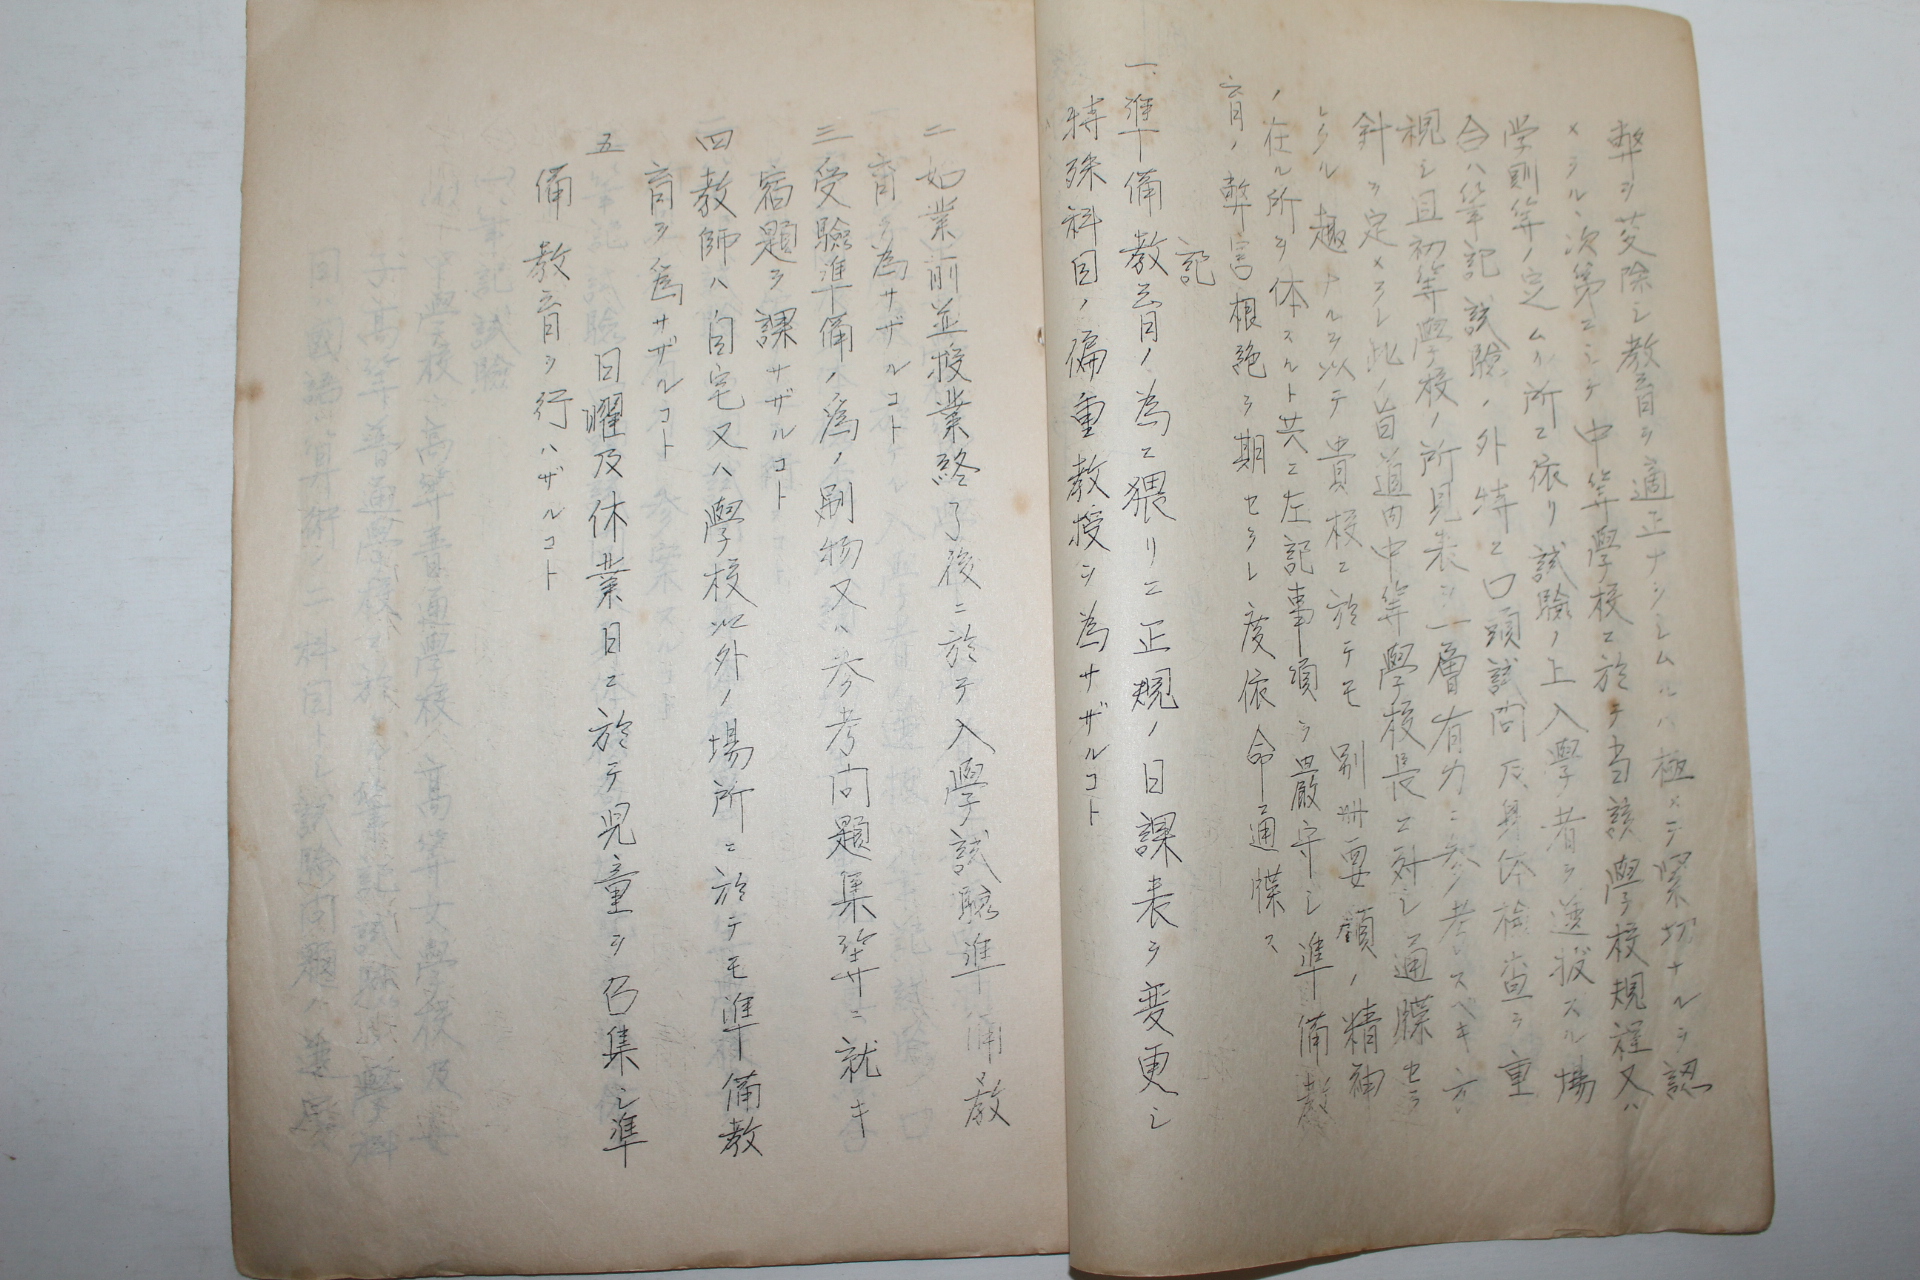 弊ヲ芟除シ教育ヲ適正ナラシムルハ極メテ緊切ナルヲ認
メラル、次第ニシテ中等學校ニ於テ当該學校規程又ハ
学則等ノ定ムル所ニ依リ試驗ノ上入學者ヲ選抜スル場
合ハ筆記試驗ノ外特ニ口頭試問及身体檢査ヲ重
視シ且初等學校ノ所見表ヲ一層有力ニ参考スベキ方
針ヲ定メラレ此ノ旨道内中等學校長ニ対シ通牒セラ
レタル趣ナルヲ以テ貴校ニ於テモ別冊要領ノ精神
ノ在ル所ヲ体スルト共ニ左記事項ヲ嚴守シ準備教
育ノ弊害根絶ヲ期セラレ度依命通牒ス
記
一、準備教育ノ為ニ猥リニ正規ノ日課表ヲ変更シ
特殊科目ノ偏重教授ヲ為サザルコト
二 始業前並授業終了後ニ於テ入學試驗準備教
育ヲ為サザルコト
三 受驗準備ノ為ノ刷物又ハ参考問題集等ニ就キ
宿題ヲ課サザルコト
四 教師ハ自宅又ハ學校以外ノ場所ニ於テモ準備教
育ヲ為サザルコト
五 日曜及休業日ニ於テ児童ヲ召集シ準
備教育ヲ行ハザルコト